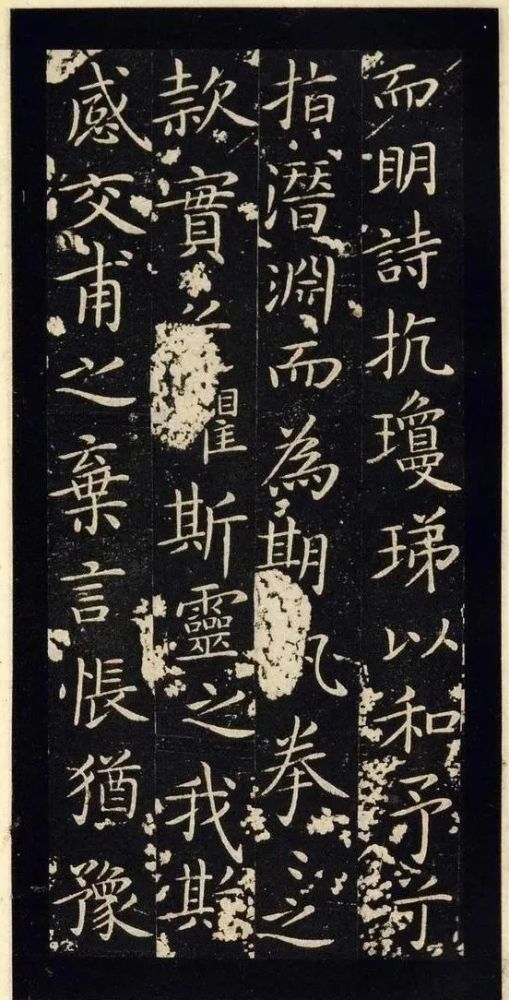 而明詩抗瓊珶以和予兮
指潛淵而為期拳〻之
款實斯靈之我
感交甫之棄言悵猶豫